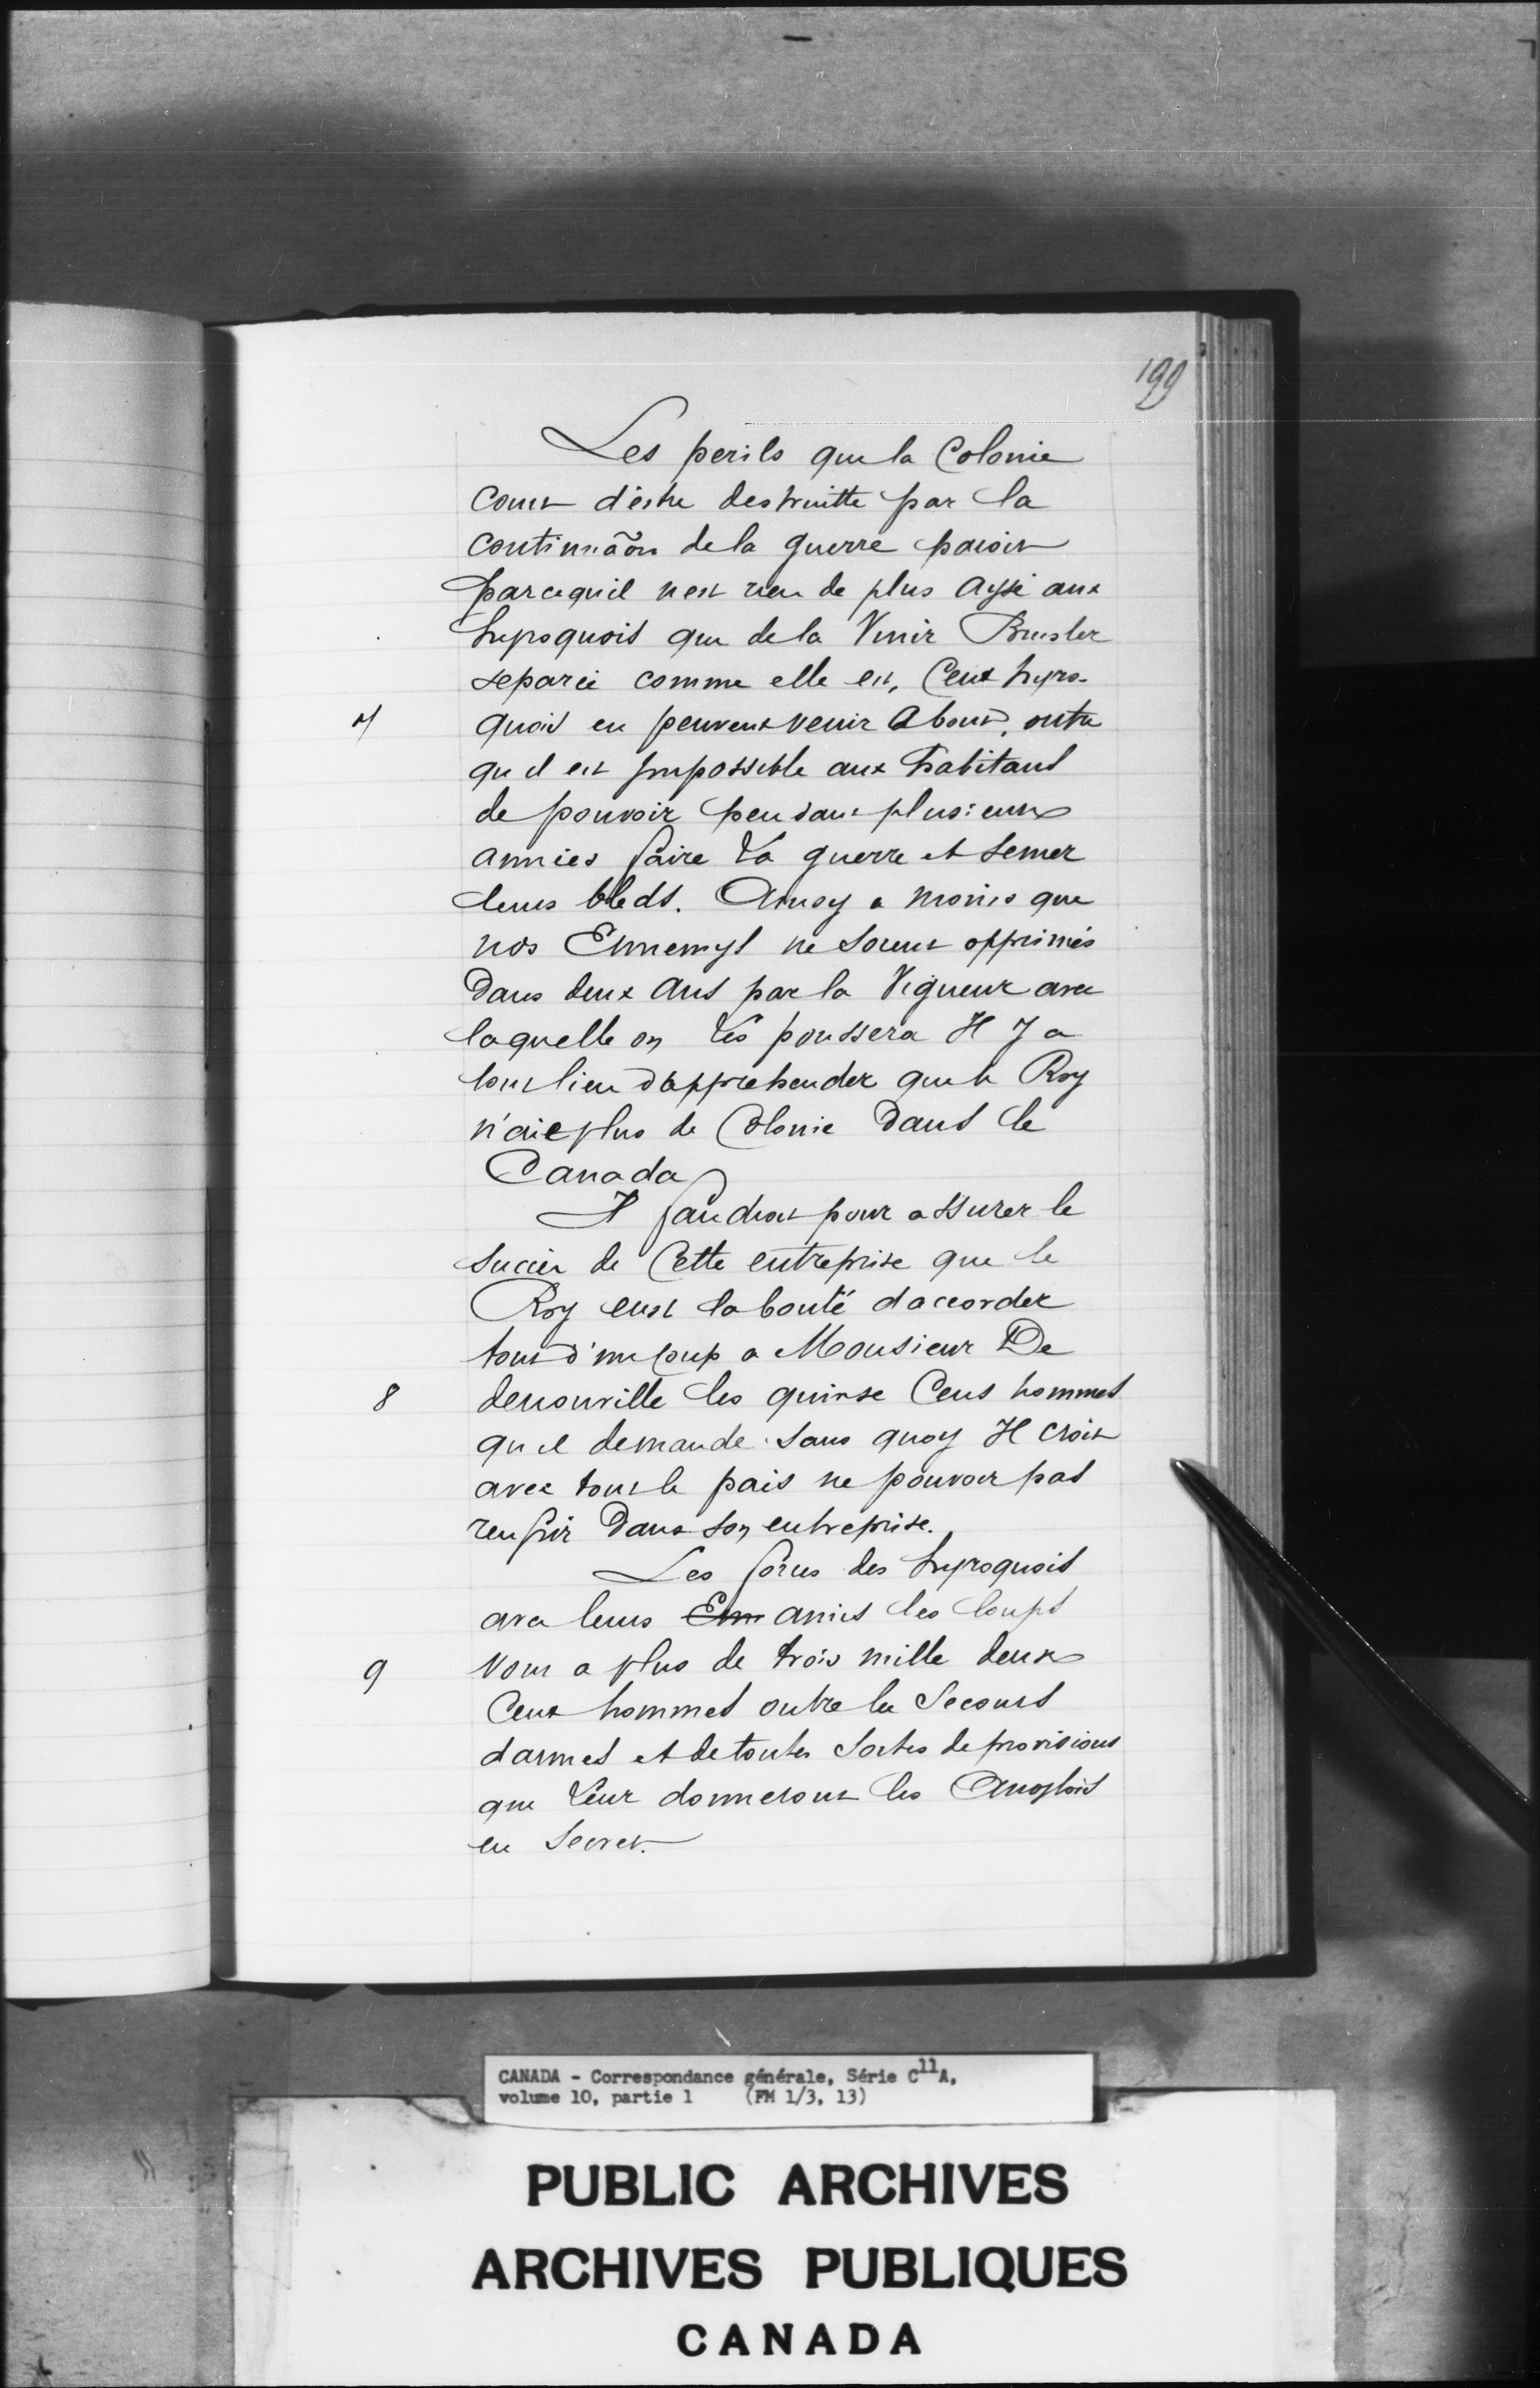 199
Les perils que la Colonie
court d'estre destruitte par la
continuãon de la guerre paroist
parcequil nest rien de plus aysé aux
hyroquois que de la Venir Brusler
separée comme elle est, Ceux hyro-
7 quois en peuvent venir a bout, outre
qu il est impossible aux habitans
de pouvoir pendant plusieurs
années faire la guerre et semer
leurs bleds. Ainsy a moins que
nos Ennemys ne soient opprimés
Dans deux ans par la Vigueur avec
laquelle on les poussera Il y a
tout lieu d'apprehender que le Roy
n'aie plus de Colonie Dans le
Canada
Il faudroit pour assurer le
succès de Cette entreprise que le
Roy eust la bonté d'accorder
tout d'un coup a Monsieur De
8 denonville les quinse Cens hommes
qu il demande sans quoy Il croit
avec tout le païs ne pouvoir pas
reussir Dans son entreprise.
Les forces des hyroquois
avec leurs Em amis les loups
9 vont a plus de trois mille deux
Cens hommes outre le Secours
darmes et de toutes sortes de provisions
que leur donneront les Anglois
en Secret.
CANADA - Correspondance générale, Série C11A,
volume 10, partie 1 (FM 1/3, 13)
PUBLIC ARCHIVES
ARCHIVES PUBLIQUES
CANADA